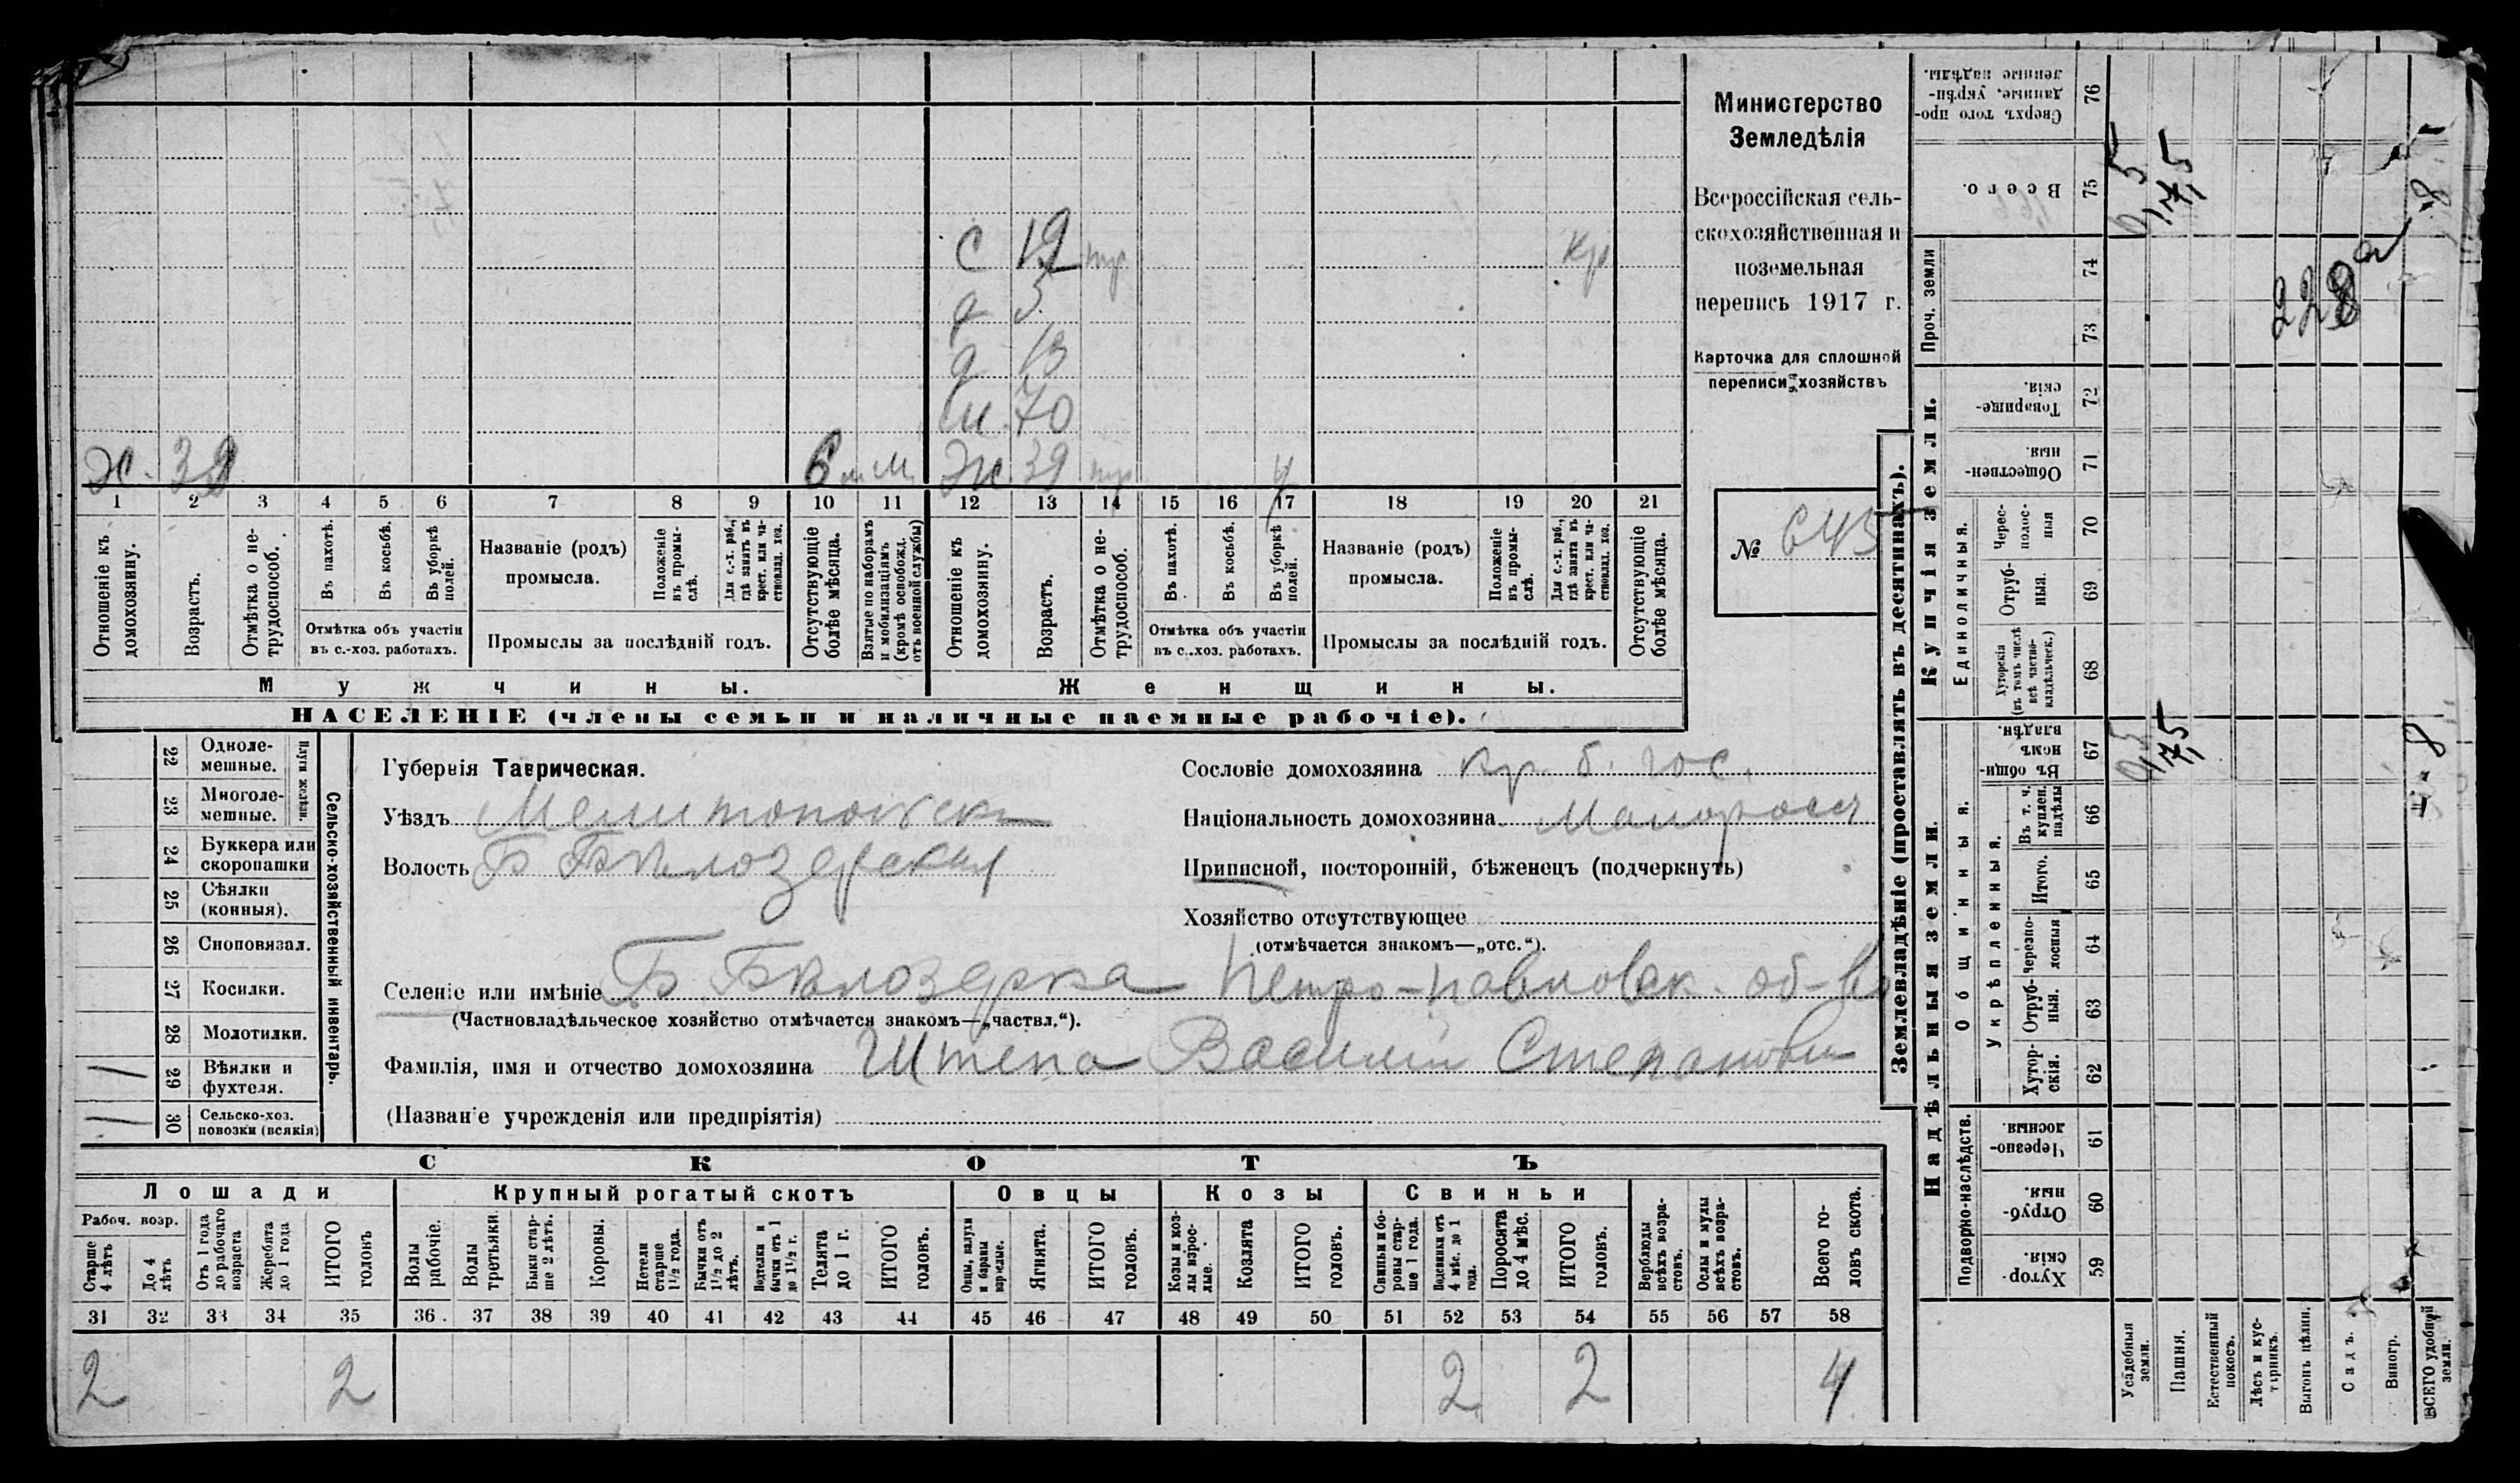 Министерство
Земледѣлія
Всероссійская сель-
скохозяйственная и
поземельная
перепись 1917 г.
Карточка для сплошной
переписи хозяйствъ
№ 643
С 19 тр кр
д 5
д 13
м 70
Ж. 39 м Ж. 39 тр
1 2 3 4 5 6 7 8 9 10 11 12 13 14 15 16 17 18 19 20 21
Отношеніе къ домохозяину.
Возрастъ.
Отмѣтка о не-трудоспособ.
Въ пахотѣ.
Въ косьбѣ.
Въ уборкѣ полей.
Отмѣтка объ участіи
въ с.-хоз. работахъ.
Названіе (родъ)
промысла.
Положеніе въ промы-слѣ.
Для с.-х. раб., гдѣ занятъ въ крест. или ча-стновлад. хоз.
Промыслы за послѣдній годъ.
Отсутствующіе болѣе мѣсяца.
Взятые по наборамъ и мобилизаціямъ (кромѣ освобожд. отъ военной службы)
Отношеніе къ домохозяину.
Возрастъ.
Отмѣтка о не-трудоспособ.
Въ пахотѣ.
Въ косьбѣ.
Въ уборкѣ полей.
Отмѣтка объ участіи
въ с.-хоз. работахъ.
Названіе (родъ)
промысла.
Положеніе въ промы-слѣ.
Для с.-х. раб., гдѣ занята въ крест. или ча-стновлад. хоз.
Промыслы за послѣдній годъ.
Отсутствующіе болѣе мѣсяца.
Мужчины. Женщины.
НАСЕЛЕНІЕ (члены семьи и наличные наемные рабочіе).
22 Одноле-мешные.
23 Многоле-мешные.
Плуги желѣзн.
24 Буккера или скоропашки
25 Сѣялки (конныя).
26 Сноповязал.
27 Косилки.
28 Молотилки.
1 29 Вѣялки и фухтеля.
1 30 Сельско-хоз. повозки (всякія)
Сельско-хозяйственный инвентарь.
Губернія Таврическая.
Уѣздъ Мелитопольск
Волость Б Бѣлозерская
Сословіе домохозяина кр. б. гос.
Національность домохозяина Малоросс
Приписной, посторонній, бѣженецъ (подчеркнуть)
Хозяйство отсутствующее
(отмѣчается знакомъ—„отс.“).
Селеніе или имѣніе Б. Бѣлозерка Петро-павловск. об-во
(Частновладѣльческое хозяйство отмѣчается знакомъ—„частвл.“).
Фамилія, имя и отчество домохозяина Штепа Василій Степанови
(Названіе учрежденія или предпріятія)
СКОТЪ
Лошади Крупный рогатый скотъ Овцы Козы Свиньи
Рабоч. возр.
Старше 4 лѣтъ
До 4 лѣтъ
Отъ 1 года до рабочаго возраста
Жеребята до 1 года
ИТОГО головъ
Волы рабочіе.
Волы третьяки.
Быки стар-ше 2 лѣтъ.
Коровы.
Нетели старше 1½ года.
Бычки отъ 1½ до 2 лѣтъ.
Подтелки и бычки отъ 1 до 1½ г.
Телята до 1 г.
ИТОГО головъ.
Овцы, валухи и бараны взрослые.
Ягнята.
ИТОГО головъ.
Козы и коз-лы взрос-лые.
Козлята
ИТОГО головъ.
Свиньи и бо-ровы стар-ше 1 года.
Подсвинки отъ 4 мѣс. до 1 года.
Поросята до 4 мѣс.
ИТОГО головъ.
Верблюды всѣхъ возра-стовъ.
Ослы и мулы всѣхъ возра-стовъ.
Всего го-ловъ скота.
31 32 33 34 35 36 37 38 39 40 41 42 43 44 45 46 47 48 49 50 51 52 53 54 55 56 57 58
2 2 2 2 4
Землевладѣніе (проставлять въ десятинахъ).
Надѣльныя земли. Купчія земли. Проч. земли
Подворно-наслѣдств.
Общинныя.
Укрѣпленныя.
Единоличныя.
Хутор-скія. 59
Отруб-ныя. 60
Черезпо-лосныя. 61
Хутор-скія. 62
Отруб-ныя. 63
Черезпо-лосныя 64
Итого. 65
Въ т. ч. куплен. надѣлы 66
Въ общи-номъ владѣн. 67
Хуторскія (въ томъ числѣ всѣ частно-владѣльческ.) 68
Отруб-ныя. 69
Черес-полос-ныя 70
Обществен-ныя. 71
Товарище-скія. 72
73
74
Всего. 75
Сверхъ того про-данные, укрѣп-ленные надѣлы. 76
Усадебныя земли.
Пашня.
Естественный покосъ.
Лѣсъ и кус-тарникъ.
Выгонъ цѣлин.
Садъ.
Виногр.
ВСЕГО удобной земли.
0,5 0,5
7,5 7,5
8 8
228